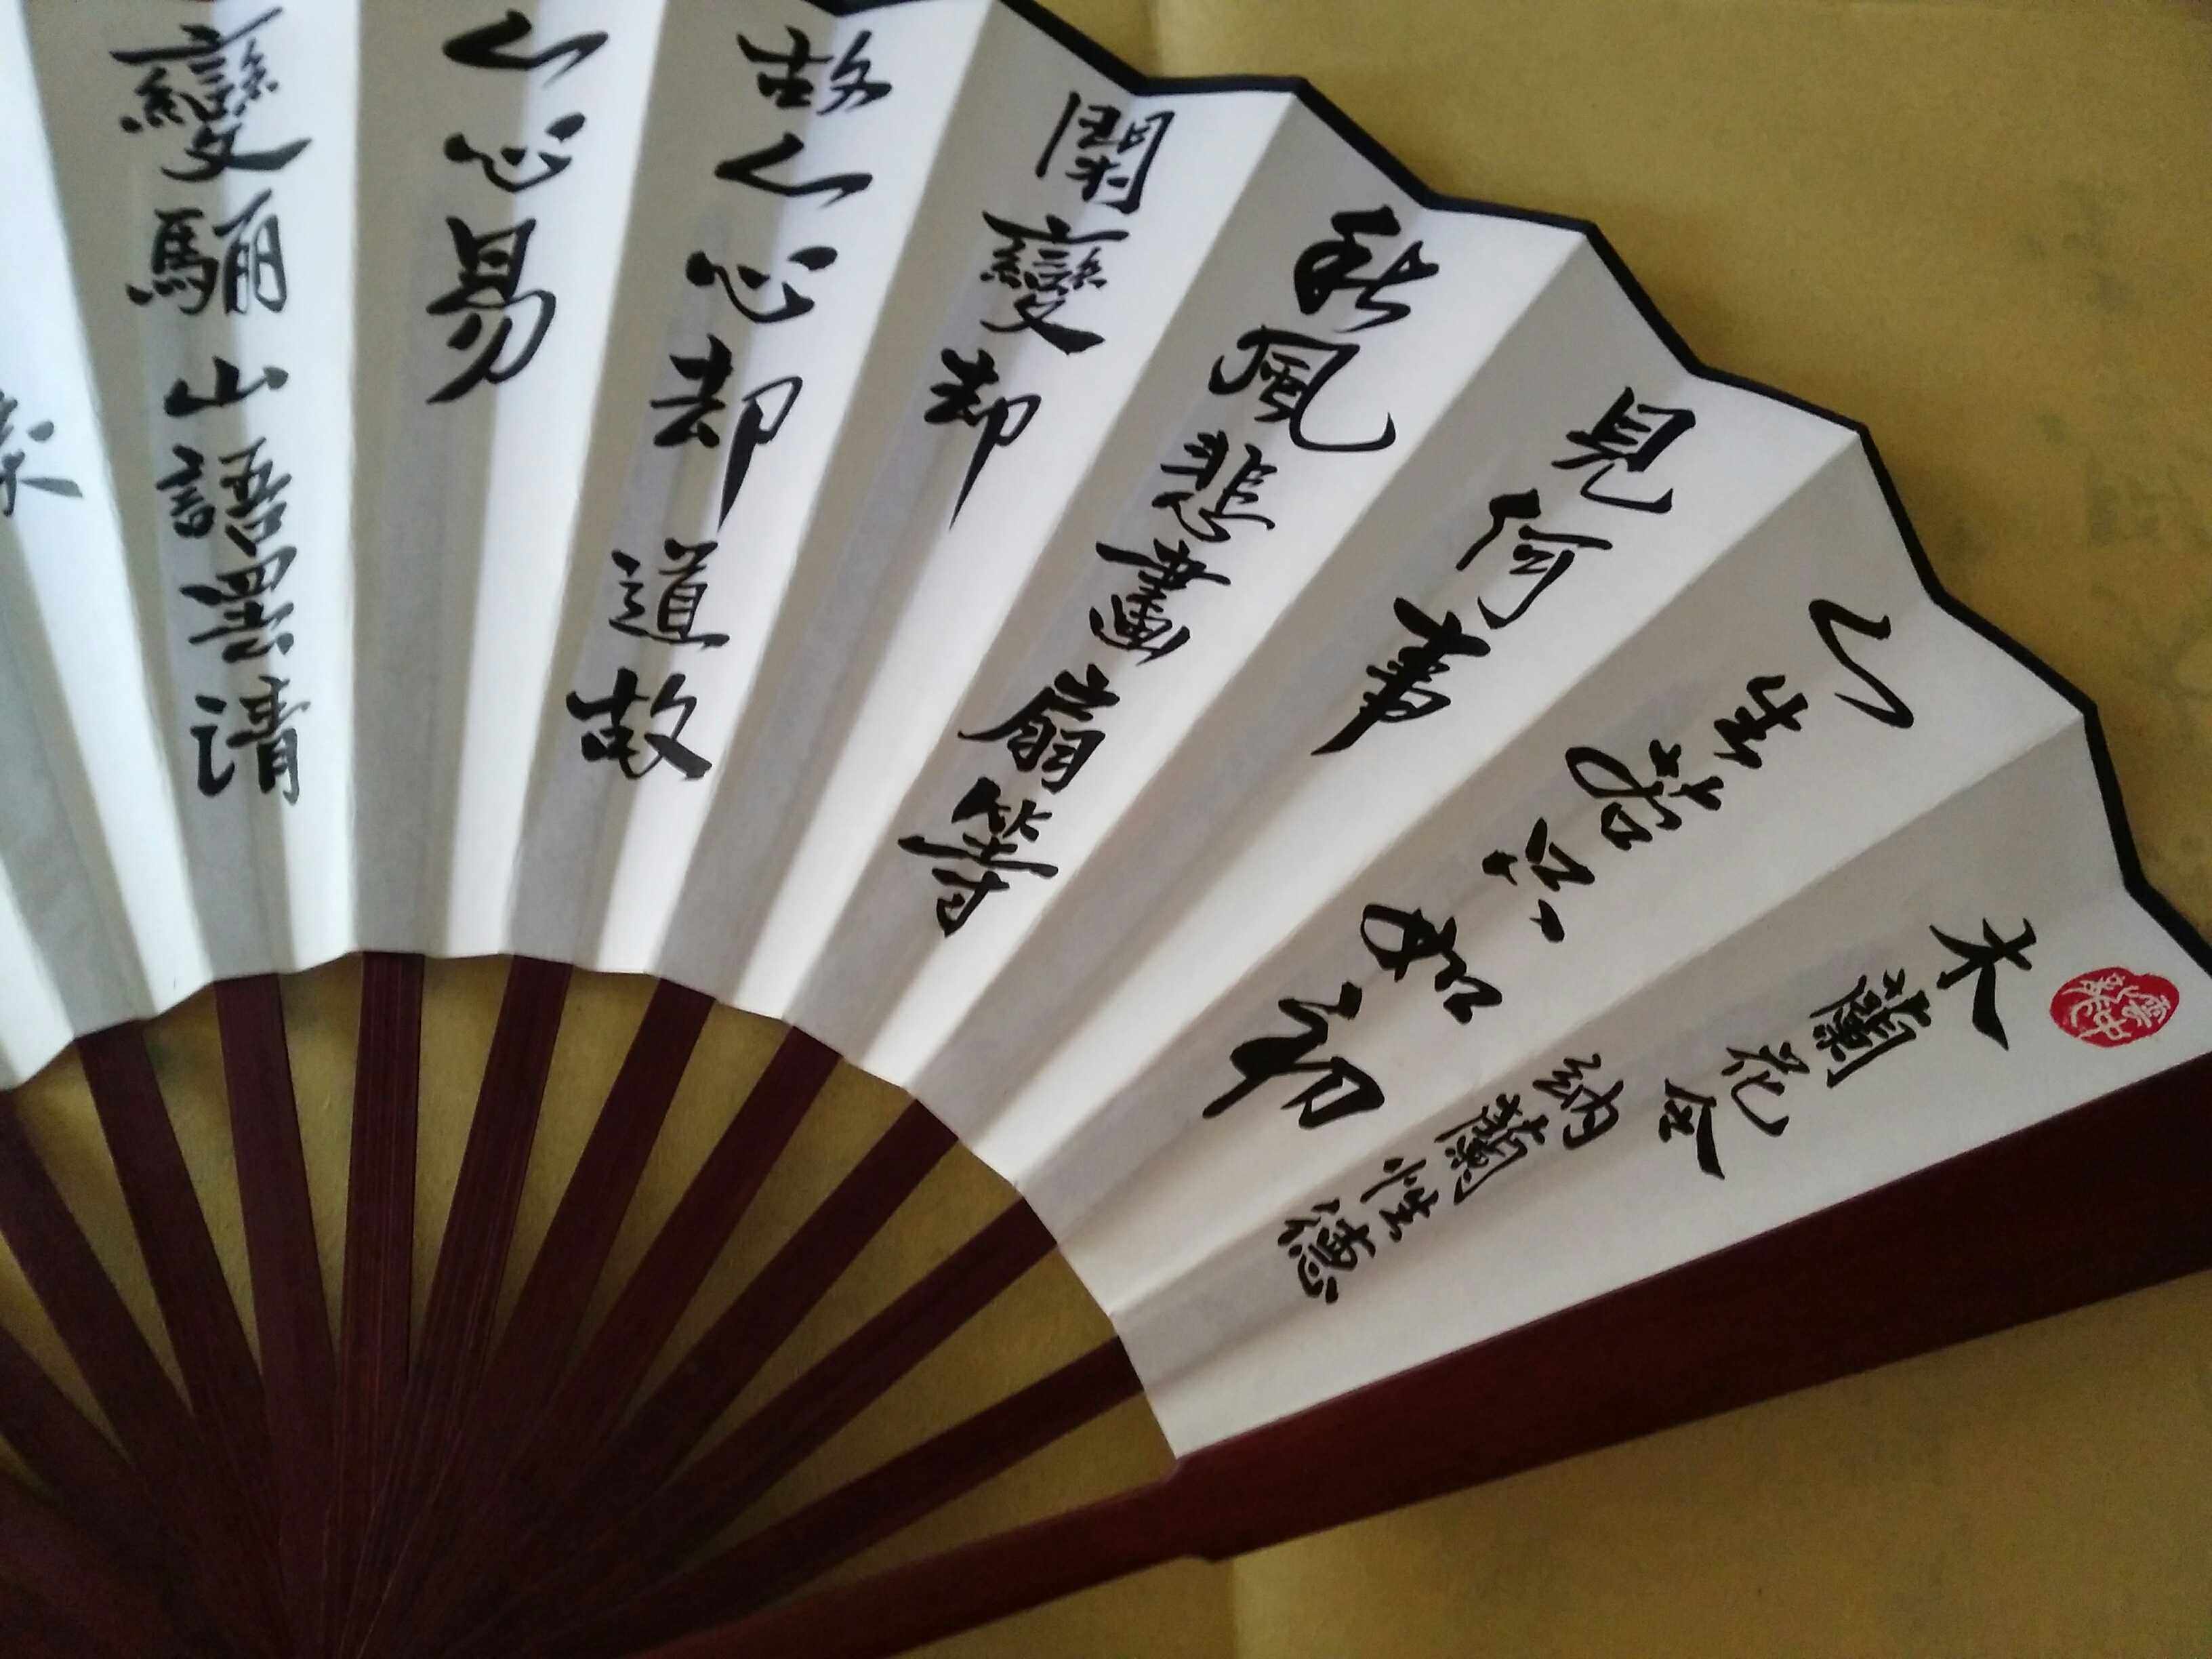 木蘭花令
納蘭性德
人生若只如初
見何事
秋風悲畫扇等
閑變却
故人心却道故
人心易
變驪山語罷清